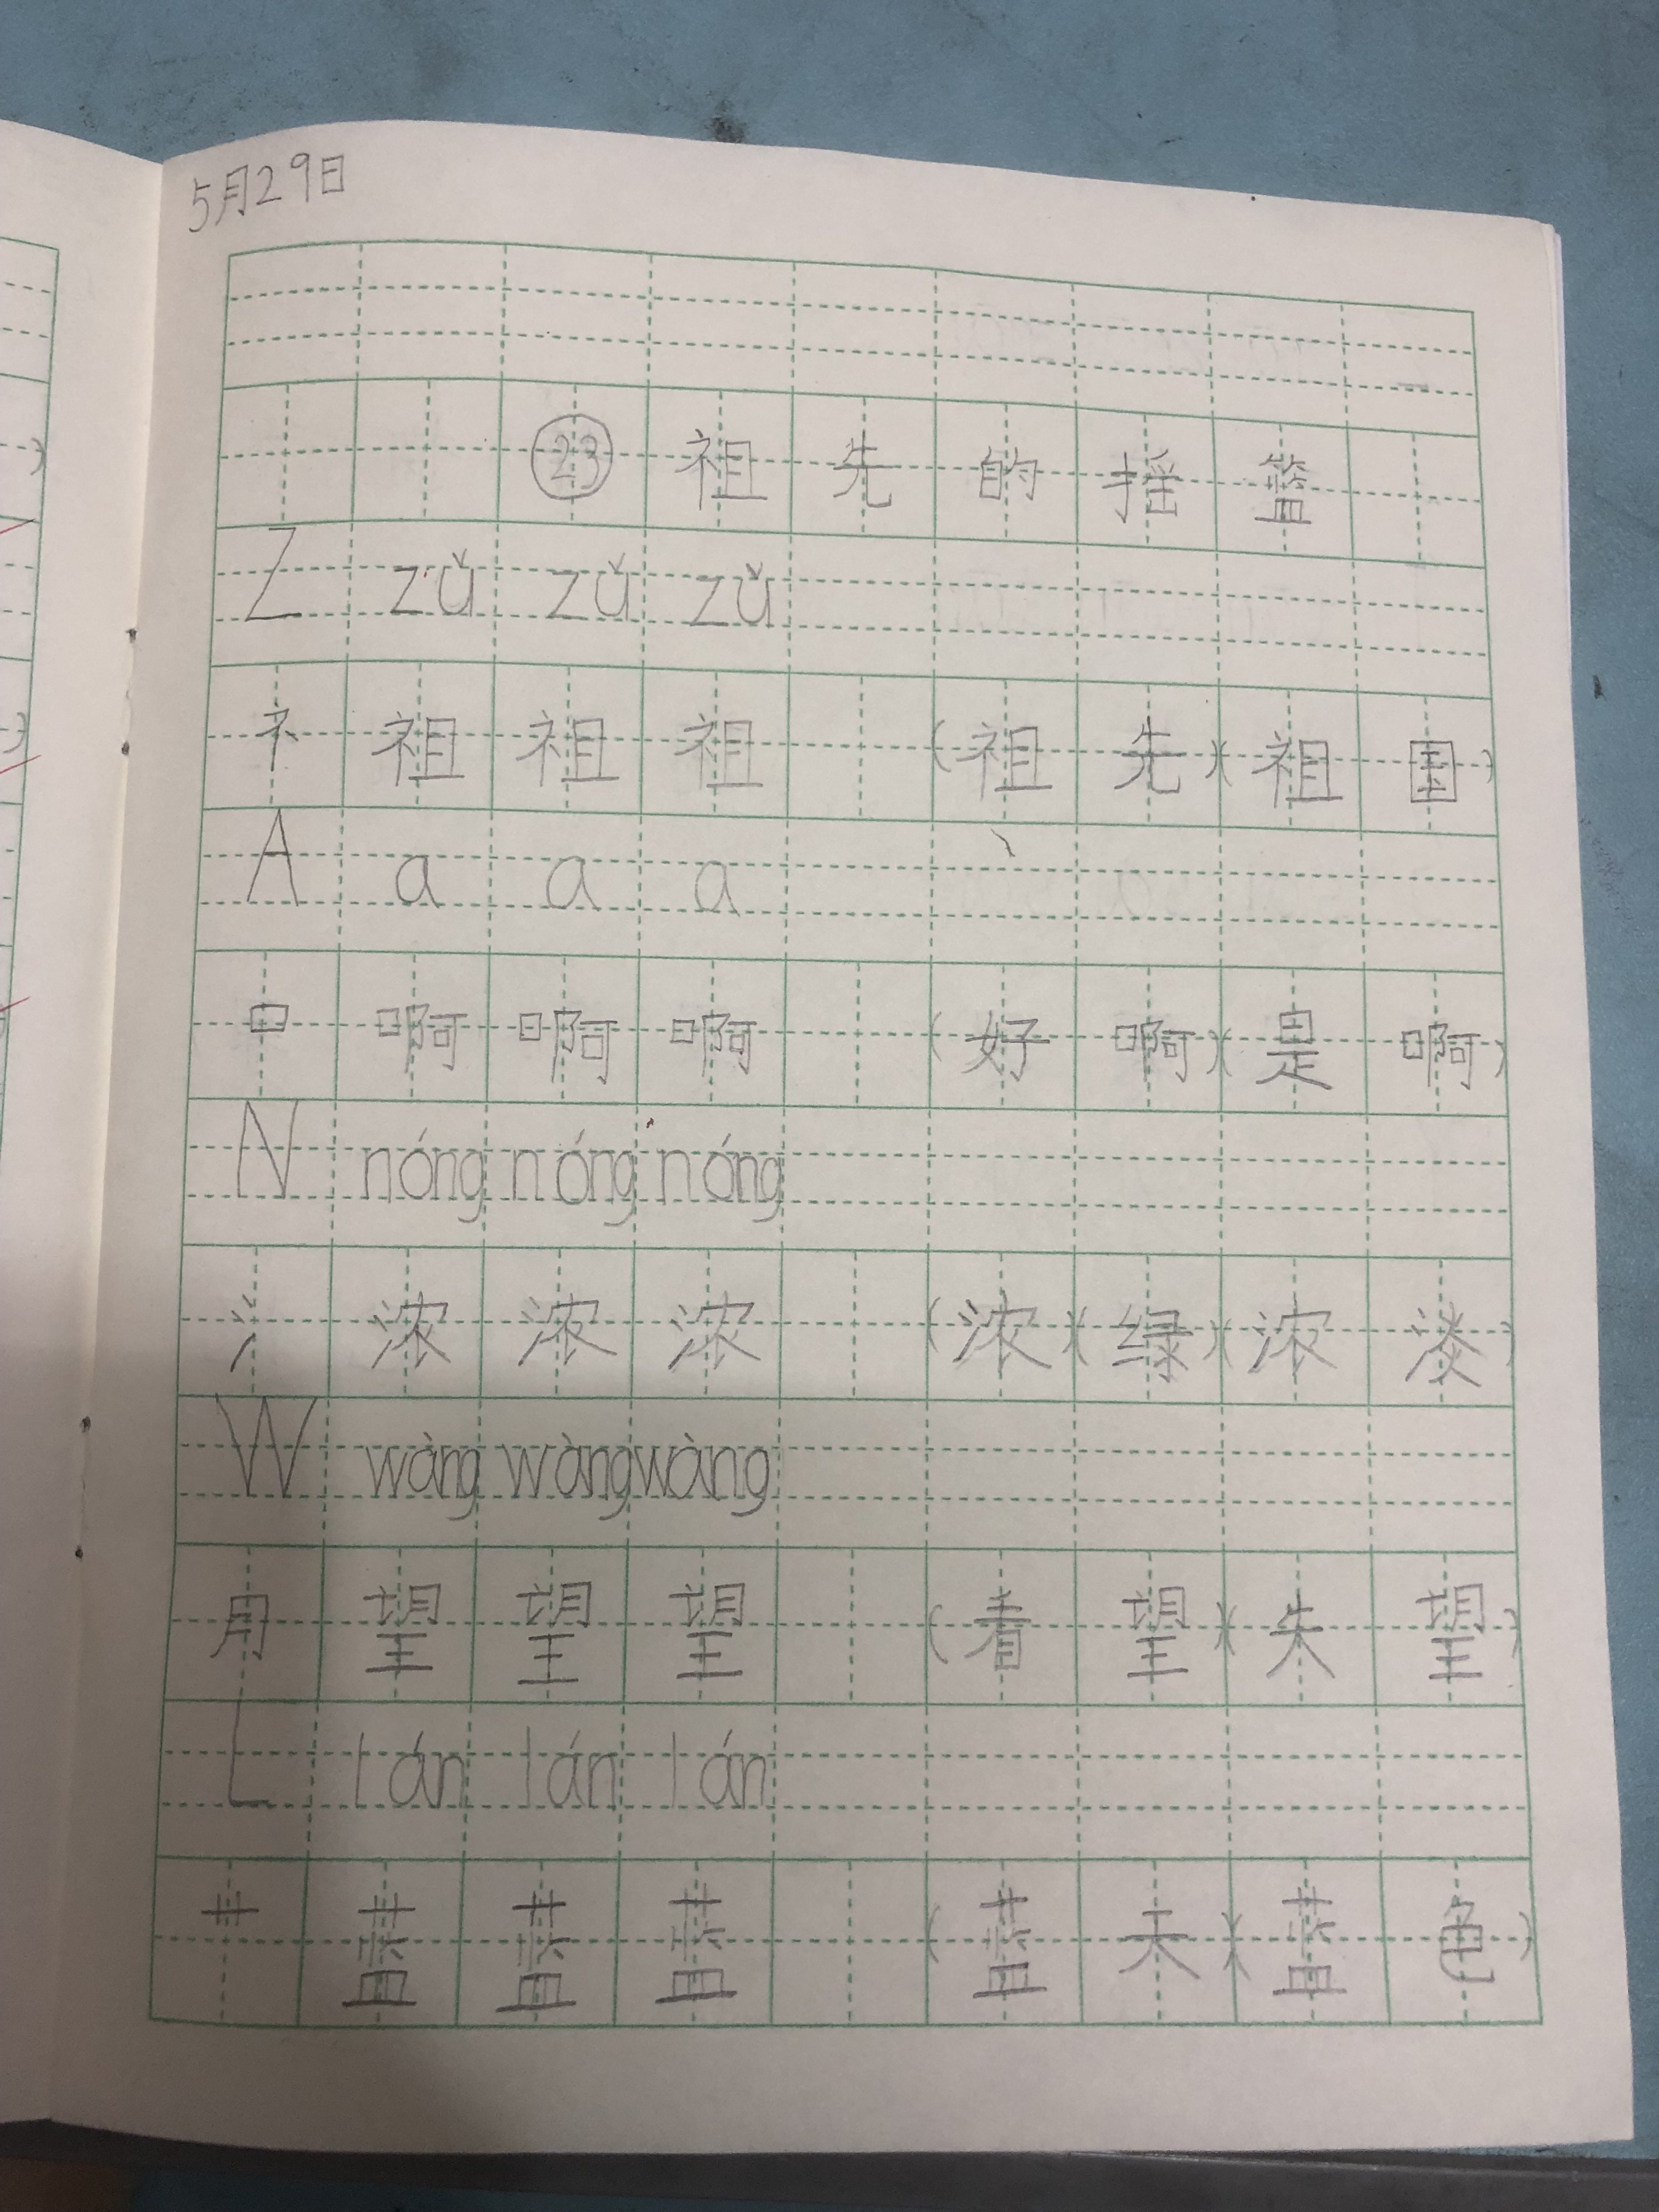 5月29日
㉓ 祖先的摇篮
Z zǔ zǔ zǔ
礻 祖 祖 祖 (祖先)(祖国)
A a a a
口 啊 啊 啊 (好啊)(是啊)
N nóng nóng nóng
氵 浓 浓 浓 (浓)(绿)(浓淡)
W wàng wàng wàng
月 望 望 望 (看望)(失望)
L lán lán lán
艹 蓝 蓝 蓝 (蓝天)(蓝色)